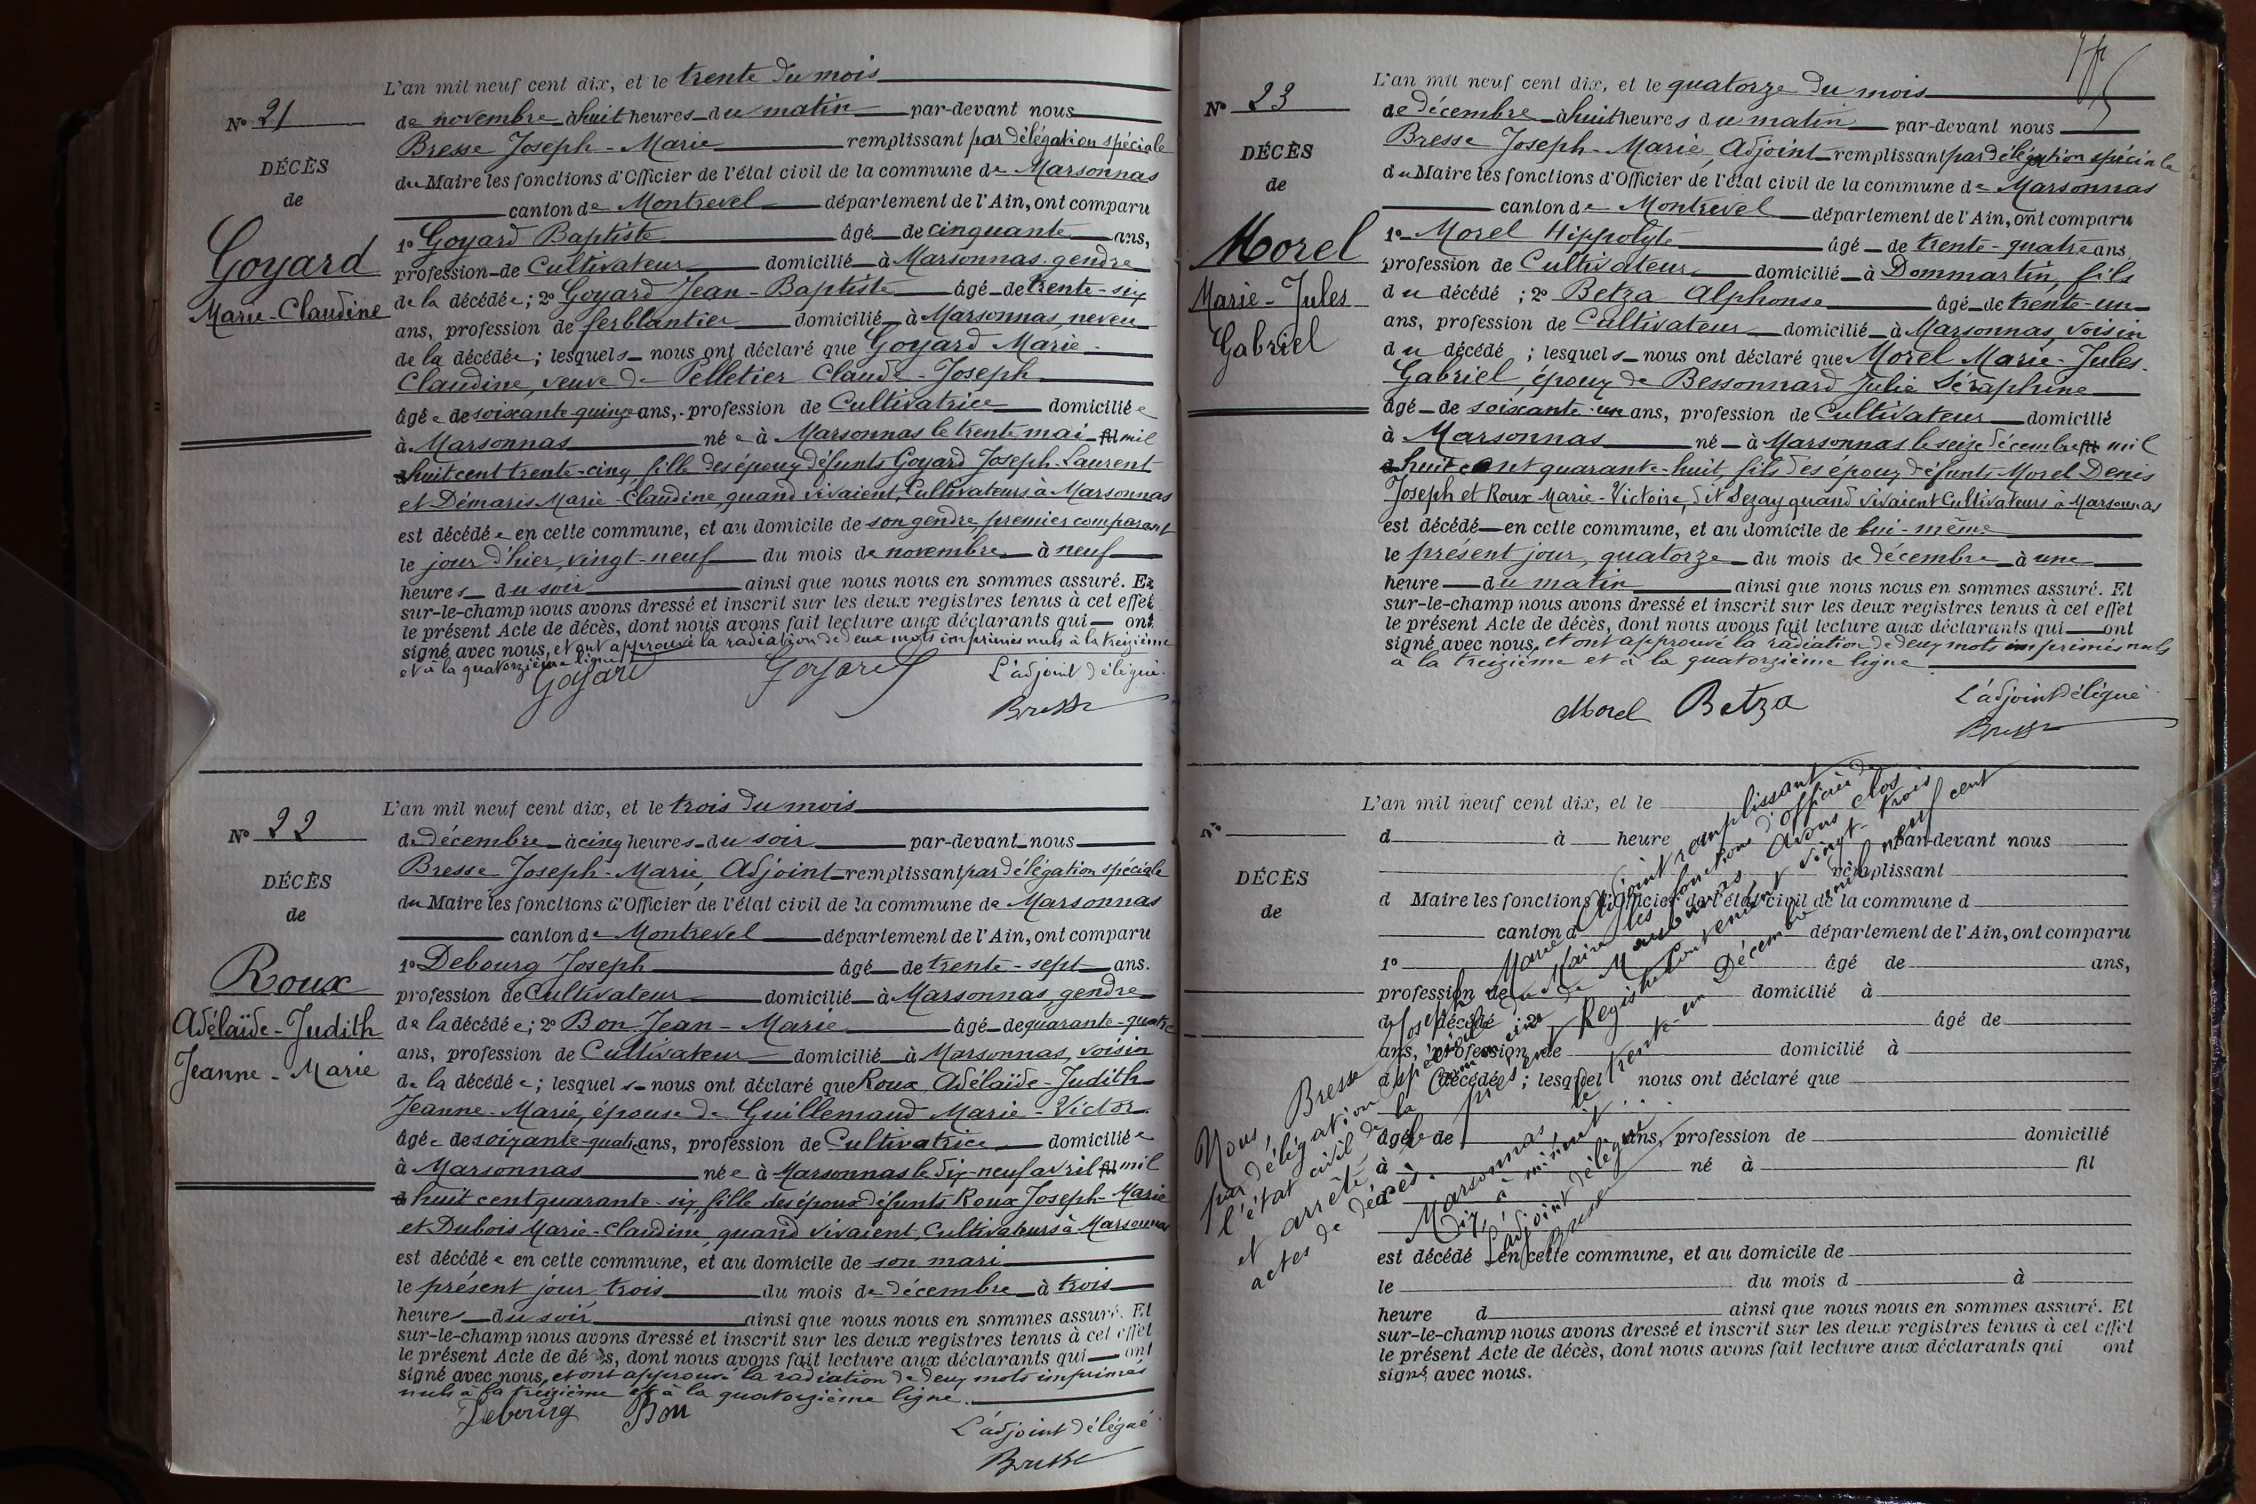 L'an mil neuf cent dix, et le trente du mois
No 21
de novembre à huit heures du matin par-devant nous
Bresse Joseph-Marie remplissant par délégation spéciale
DÉCÈS
du Maire les fonctions d'Officier de l'état civil de la commune de Marsonnas
de
canton de Montrevel département de l'Ain, ont comparu
1o Goyard Baptiste âgé de cinquante ans,
Goyard
profession de Cultivateur domicilié à Marsonnas, gendre
Marie-Claudine
de la décédée; 2o Goyard Jean-Baptiste âgé de trente-six
ans, profession de ferblantier domicilié à Marsonnas, neveu
de la décédée; lesquels nous ont déclaré que Goyard Marie-
Claudine, veuve de Pelletier Claude-Joseph
âgée de soixante-quinze ans, profession de Cultivatrice domiciliée
à Marsonnas née à Marsonnas le trente mai fil mil
d huit cent trente-cinq, fille des époux défunts Goyard Joseph-Laurent
et Démaris Marie-Claudine, quand vivaient, Cultivateurs à Marsonnas
est décédée en cette commune, et au domicile de son gendre, premier comparant
le jour d'hier, vingt-neuf du mois de novembre à neuf
heures du soir ainsi que nous nous en sommes assuré. Et
sur-le-champ nous avons dressé et inscrit sur les deux registres tenus à cet effet
le présent Acte de décès, dont nous avons fait lecture aux déclarants qui ont
signé avec nous, et ont approuvé la radiation de deux mots imprimés nuls à la treizième
et à la quatorzième ligne
Goyard Goyard L'adjoint délégué
Bresse
L'an mil neuf cent dix, et le trois du mois
No 22
de décembre à cinq heures du soir par-devant nous
Bresse Joseph-Marie, Adjoint remplissant par délégation spéciale
DÉCÈS
du Maire les fonctions d'Officier de l'état civil de la commune de Marsonnas
de
canton de Montrevel département de l'Ain, ont comparu
1o Debourg Joseph âgé de trente-sept ans.
Roux
profession de Cultivateur domicilié à Marsonnas, gendre
Adélaïde-Judith
de la décédée; 2o Bon Jean-Marie âgé de quarante-quatre
Jeanne-Marie
ans, profession de Cultivateur domicilié à Marsonnas, voisin
de la décédée; lesquels nous ont déclaré que Roux Adélaïde-Judith
Jeanne-Marie, épouse de Guillemaud Marie-Victor
âgée de soixante-quatre ans, profession de Cultivatrice domiciliée
à Marsonnas née à Marsonnas le dix-neuf avril fil mil
d huit cent quarante-six, fille des époux défunts Roux Joseph-Marie
et Dubois Marie-Claudine, quand vivaient, Cultivateurs à Marsonnas
est décédée en cette commune, et au domicile de son mari
le présent jour, trois du mois de décembre à trois
heures du soir ainsi que nous nous en sommes assuré. Et
sur-le-champ nous avons dressé et inscrit sur les deux registres tenus à cet effet
le présent Acte de décès, dont nous avons fait lecture aux déclarants qui ont
signé avec nous, et ont approuvé la radiation de deux mots imprimés
nuls à la treizième et à la quatorzième ligne.
Debourg Bon
L'adjoint délégué
Bresse
L'an mil neuf cent dix, et le quatorze du mois
No 23
de décembre à huit heures du matin par-devant nous
Bresse Joseph-Marie, Adjoint remplissant par délégation spéciale
DÉCÈS
du Maire les fonctions d'Officier de l'état civil de la commune de Marsonnas
de
canton de Montrevel département de l'Ain, ont comparu
1o Morel Hippolyte âgé de trente-quatre ans,
Morel
profession de Cultivateur domicilié à Dommartin, fils
Marie-Jules
du décédé; 2o Betza Alphonse âgé de trente-un
Gabriel
ans, profession de Cultivateur domicilié à Marsonnas, voisin
du décédé; lesquels nous ont déclaré que Morel Marie-Jules-
Gabriel, époux de Bessonnard Julie Séraphine
âgé de soixante-un ans, profession de Cultivateur domicilié
à Marsonnas né à Marsonnas le seize décembre fil mil
d huit cent quarante-huit, fils des époux défunts Morel Denis
Joseph et Roux Marie-Victoire, dit Sezay quand vivaient Cultivateurs à Marsonnas
est décédé en cette commune, et au domicile de lui-même
le présent jour, quatorze du mois de décembre à une
heure du matin ainsi que nous nous en sommes assuré. Et
sur-le-champ nous avons dressé et inscrit sur les deux registres tenus à cet effet
le présent Acte de décès, dont nous avons fait lecture aux déclarants qui ont
signé avec nous, et ont approuvé la radiation de deux mots imprimés nuls
à la treizième et à la quatorzième ligne
Morel Betza L'adjoint délégué
Bresse
L'an mil neuf cent dix, et le
No
d à heure par-devant nous
remplissant
DÉCÈS
d Maire les fonctions d'Officier de l'état civil de la commune d
de
canton d département de l'Ain, ont comparu
1o âgé de ans,
profession de domicilié à
d décédé 2o âgé de
ans, profession de domicilié à
d décédé; lesquel nous ont déclaré que
âgé de ans, profession de domicilié
à né à fil
est décédé en cette commune, et au domicile de
le du mois d à
heure d ainsi que nous nous en sommes assuré. Et
sur-le-champ nous avons dressé et inscrit sur les deux registres tenus à cet effet
le présent Acte de décès, dont nous avons fait lecture aux déclarants qui ont
signé avec nous.
Nous, Bresse Joseph Marie Adjoint remplissant
par délégation spéciale du Maire les fonctions d'officier de
l'état civil de la Commune de Marsonnas, avons clos
et arrêté le présent Registre contenant vingt-trois
actes de décès.
Marsonnas, le trente-un Décembre mil neuf cent
dix, à minuit
L'adjoint délégué
Bresse